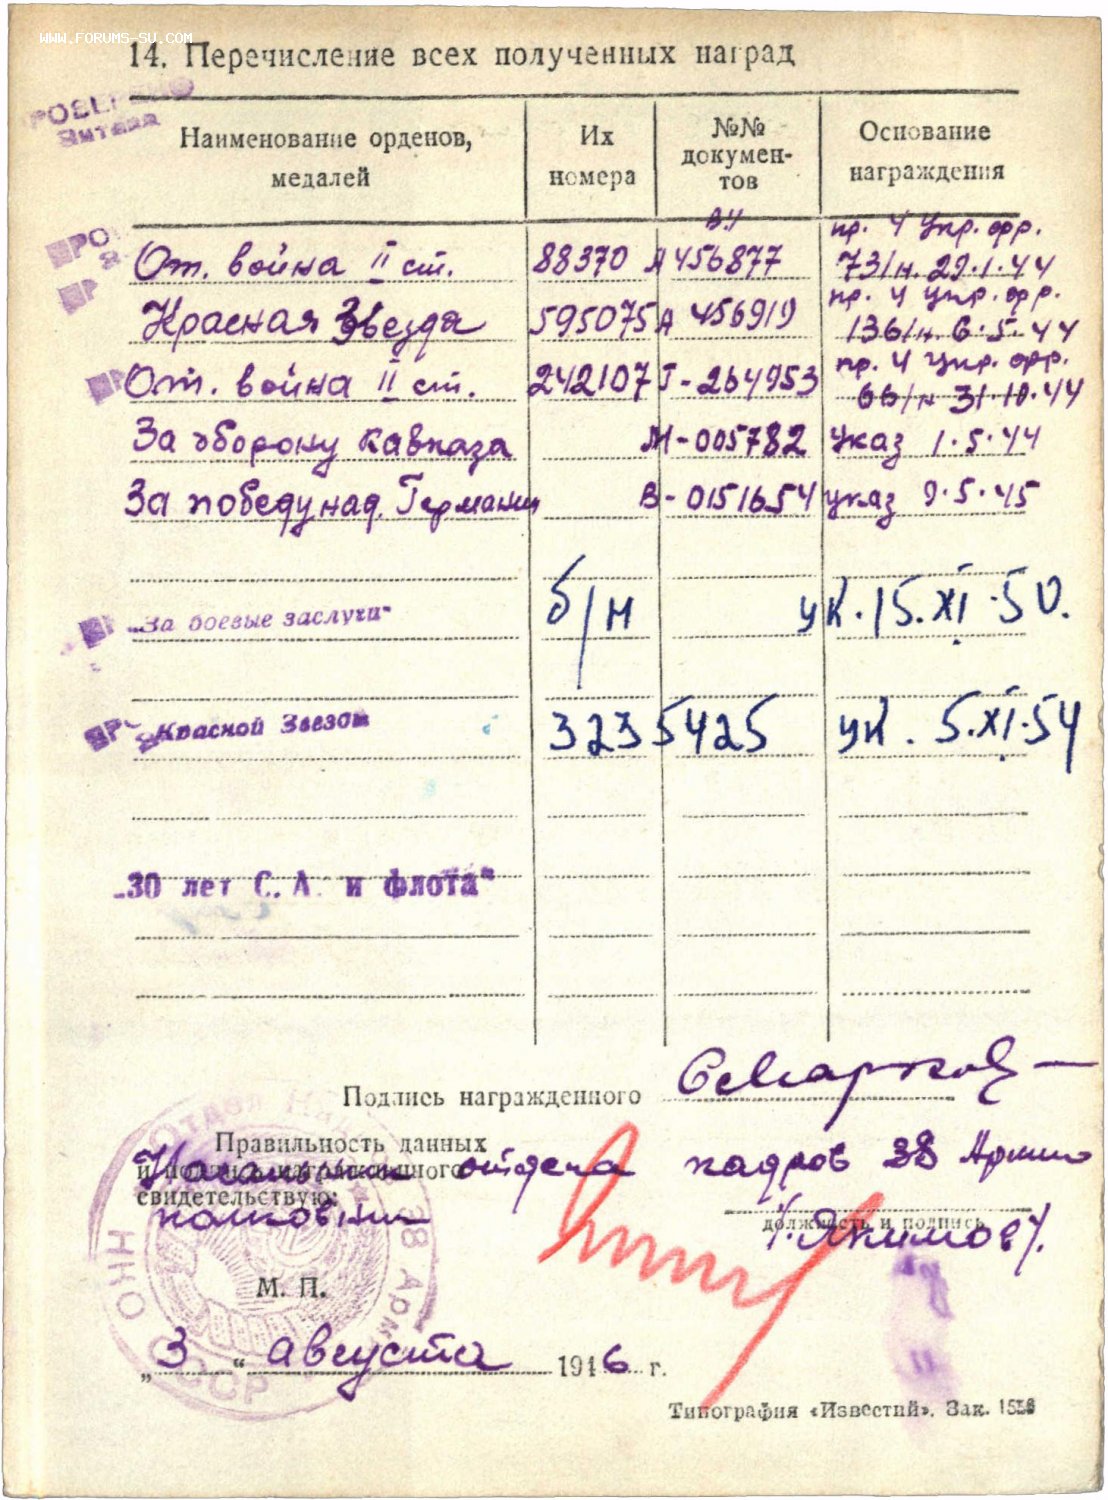 WWW.FORUMS-SU.COM
14. Перечисление всех полученных наград
Наименование орденов, медалей
Их номера
№№ документов
Основание награждения
От. война II ст. 88370 А 456877 пр. 4 Укр. фр. 73/н. 29.1.44
Красная Звезда 595075 А 456919 пр. 4 Укр. фр. 136/н. 6.5.44
От. война II ст. 242107 Г-264953 пр. 4 Укр. фр. 66/н 31.10.44
За оборону Кавказа М-005782 Указ 1.5.44
За победу над Германией В-0151654 указ 9.5.45
„За боевые заслуги“ б/н ук. 15.XI.50.
Красной Звезды 3235425 ук. 5.XI.54
„30 лет С. А. и флота“
Подпись награжденного
Правильность данных
и подпись награжденного
свидетельствую:
Начальник отдела кадров 38 Армии
полковник /Якимов/.
должность и подпись
М. П.
„3“ августа 1946 г.
Типография «Известий». Зак.